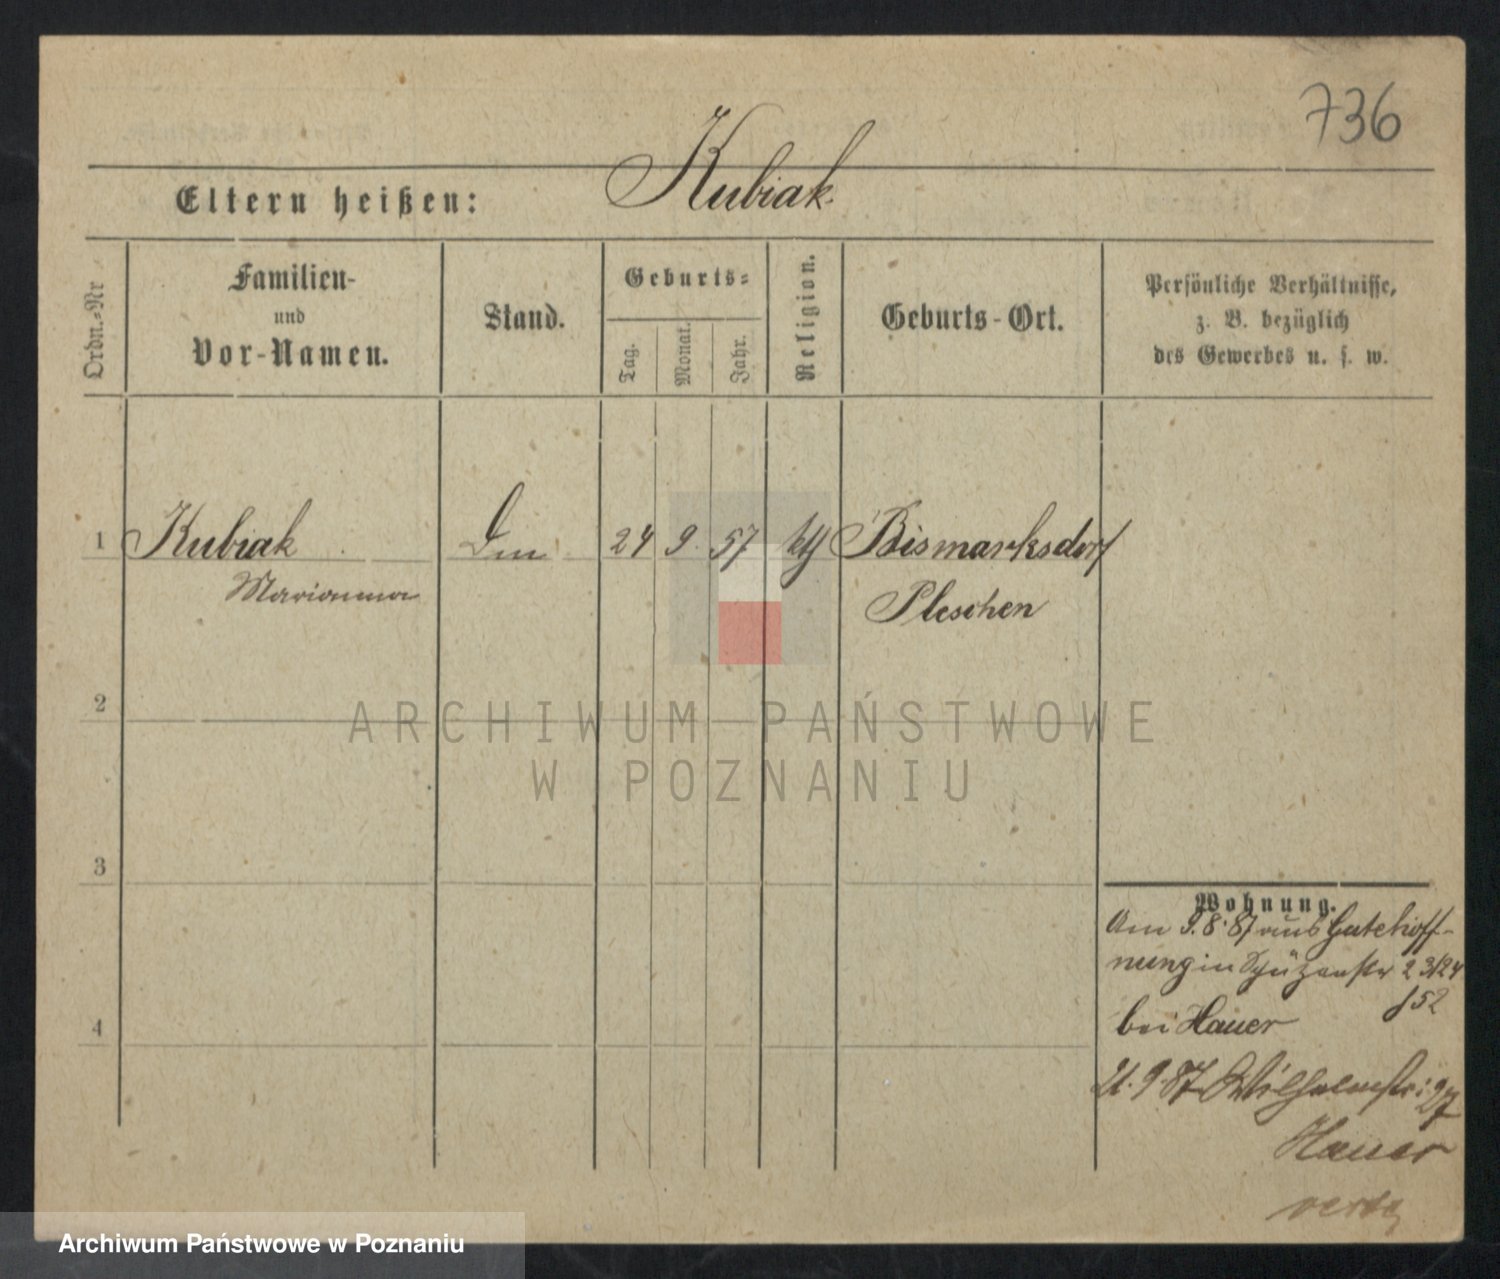 736
Eltern heißen: Kubiak
Ordn.-Nr
Familien-
und
Vor-Namen.
Stand.
Geburts-
Tag.
Monat.
Jahr.
Religion.
Geburts-Ort.
Persönliche Verhältnisse,
z. B. bezüglich
des Gewerbes u. s. w.
1 Kubiak 24 9. 57 Bismarksdorf
Marianna Pleschen
2
ARCHIWUM PAŃSTWOWE
W POZNANIU
3
Wohnung.
Am 9.8.87 aus Gutehoff-
nung in Schützenstr 23/24
52
bei Hauer
4
9.87 Wilhelmstr: 27
Hauer
Archiwum Państwowe w Poznaniu